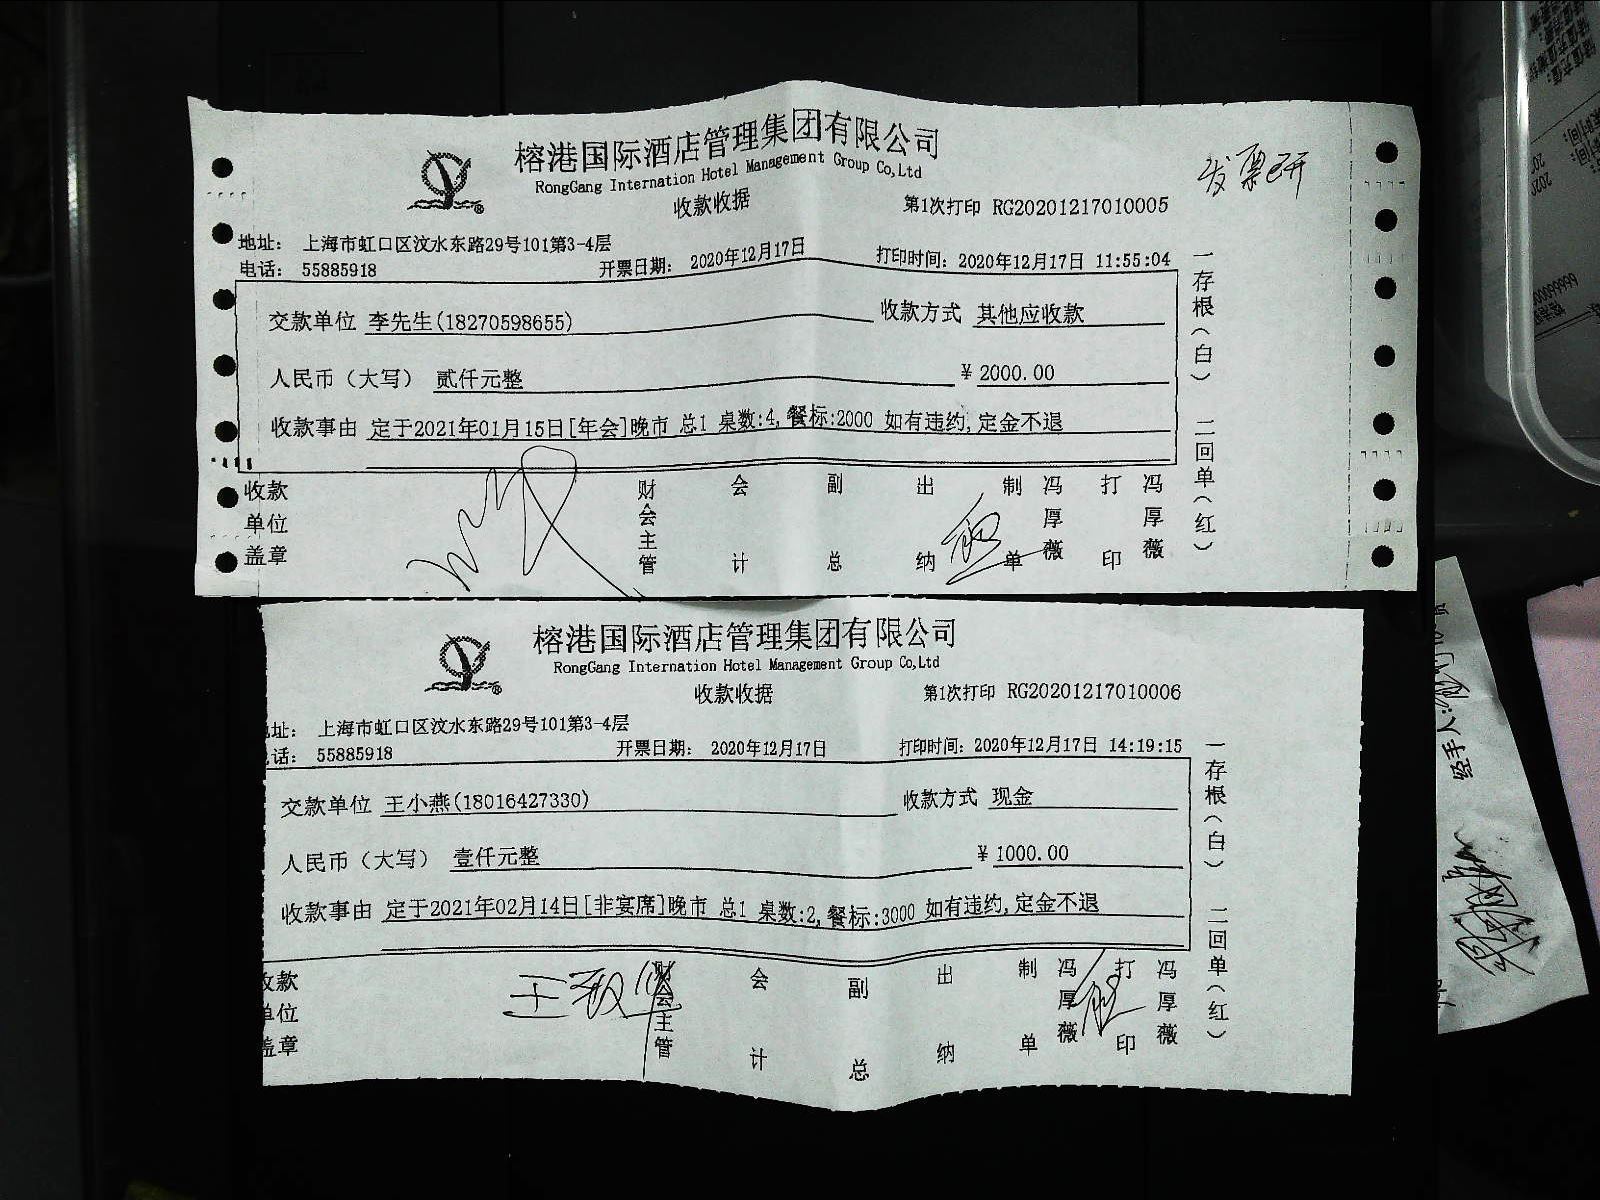 榕港国际酒店管理集团有限公司
RongGang Internation Hotel Management Group Co,Ltd
收款收据
第1次打印 RG20201217010005
发票已开
地址： 上海市虹口区汶水东路29号101第3-4层
电话： 55885918
开票日期： 2020年12月17日
打印时间：2020年12月17日 11:55:04
交款单位 李先生(18270598655)
收款方式 其他应收款
人民币（大写） 贰仟元整
¥ 2000.00
收款事由 定于2021年01月15日[年会]晚市 总1 桌数:4,餐标:2000 如有违约,定金不退
收款单位盖章
财会主管
会计
副总
出纳
制单
冯厚薇
打印
冯厚薇
一存根（白） 二回单（红）
榕港国际酒店管理集团有限公司
RongGang Internation Hotel Management Group Co,Ltd
收款收据
第1次打印 RG20201217010006
地址： 上海市虹口区汶水东路29号101第3-4层
电话： 55885918
开票日期： 2020年12月17日
打印时间：2020年12月17日 14:19:15
交款单位 王小燕(18016427330)
收款方式 现金
人民币（大写） 壹仟元整
¥ 1000.00
收款事由 定于2021年02月14日[非宴席]晚市 总1 桌数:2,餐标:3000 如有违约,定金不退
收款单位盖章
财会主管
会计
副总
出纳
制单
冯厚薇
打印
冯厚薇
一存根（白） 二回单（红）
经手人: